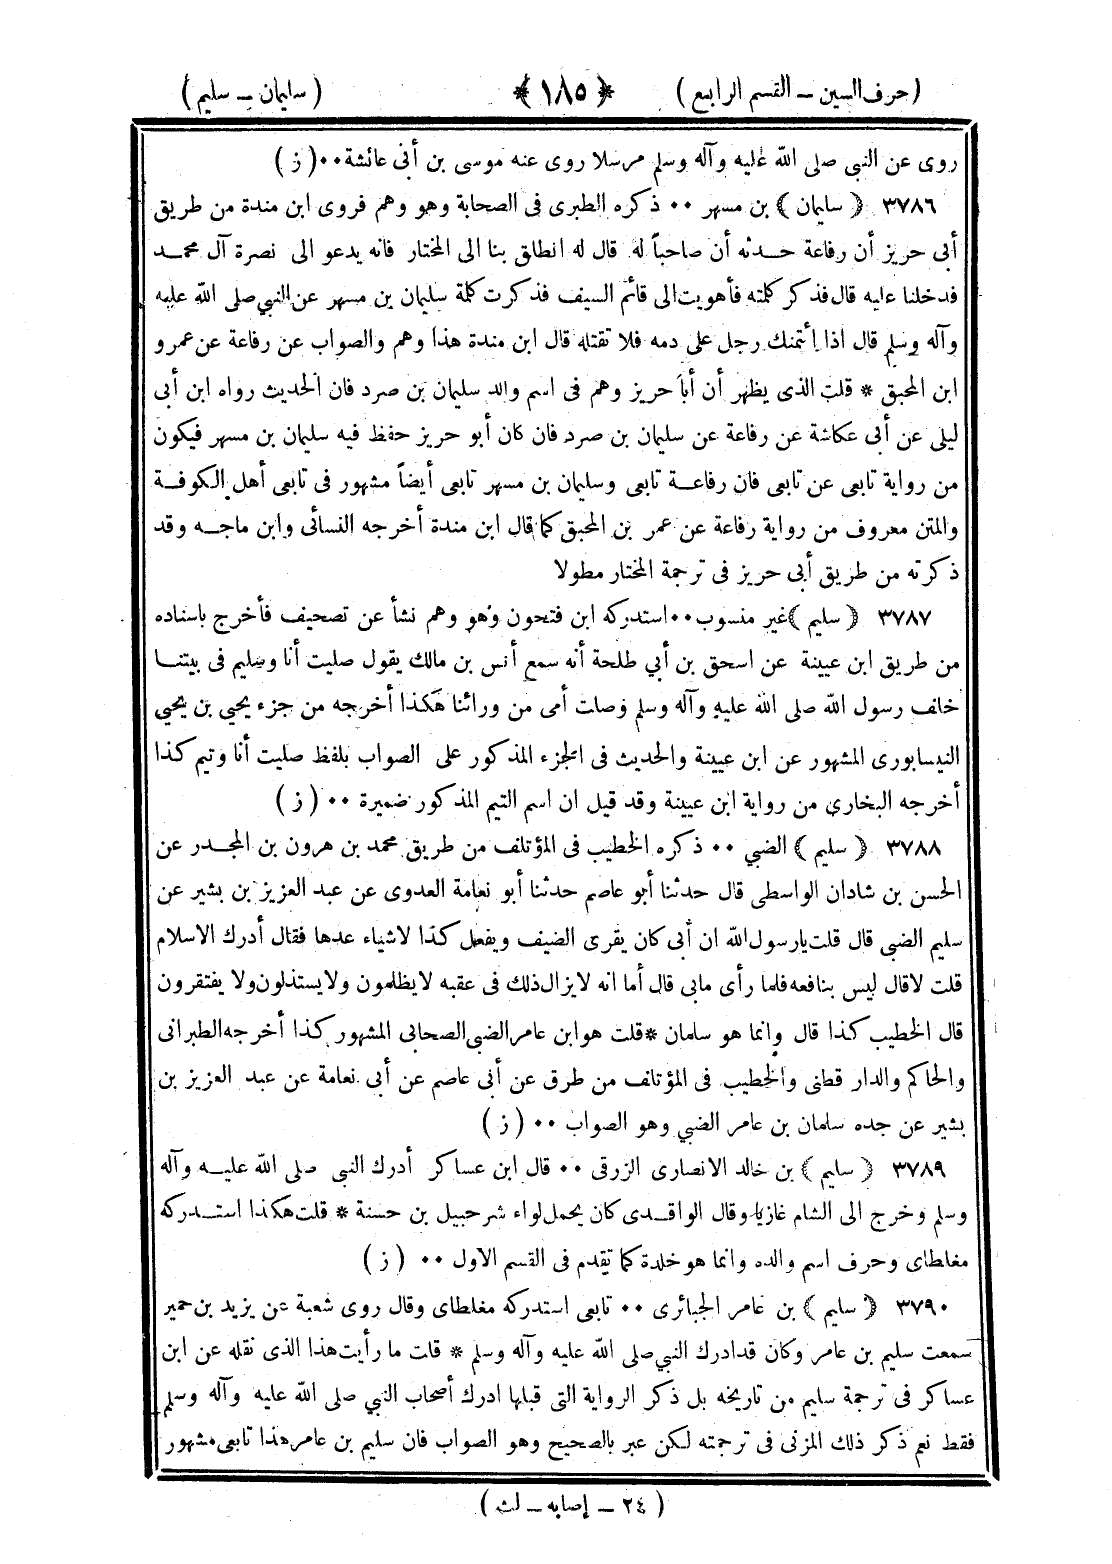 (حرف السين – القسم الرابع) ﴿ ١٨٥ ﴾ (سليمان – سليم)
روى عن النبى صلى الله عليه وآله وسلم مرسلا روى عنه موسى بن أبى عائشة ٠٠ (ز)
٣٧٨٦ ﴿ سليمان ﴾ بن مسهر ٠٠ ذكره الطبرى فى الصحابة وهو وهم فروى ابن مندة من طريق
أبى حريز أن رفاعة حدثه أن صاحباً له قال له انطلق بنا الى المختار فانه يدعو الى نصرة آل محمد
فدخلنا عليه قال فذكر كلمته فأهويت الى قائم السيف فذكرت كلمة سليمان بن مسهر عن النبى صلى الله عليه
وآله وسلم قال اذا ائتمنك رجل على دمه فلا تقتله قال ابن مندة هذا وهم والصواب عن رفاعة عن عمرو
ابن المحبق * قلت الذى يظهر أن أبا حريز وهم فى اسم والد سليمان بن صرد فان الحديث رواه ابن أبى
ليلى عن أبى عكاشة عن رفاعة عن سليمان بن صرد فان كان أبو حريز حفظ فيه سليمان بن مسهر فيكون
من رواية تابعى عن تابعى فان رفاعة تابعى وسليمان بن مسهر تابعى أيضاً مشهور فى تابعى أهل الكوفة
والمتن معروف من رواية رفاعة عن عمر بن المحبق كما قال ابن مندة أخرجه النسائى وابن ماجه وقد
ذكرته من طريق أبى حريز فى ترجمة المختار مطولا
٣٧٨٧ ﴿ سليم ﴾ غير منسوب ٠٠ استدركه ابن فتحون وهو وهم نشأ عن تصحيف فأخرج باسناده
من طريق ابن عيينة عن اسحق بن أبي طلحة أنه سمع أنس بن مالك يقول صليت أنا وسليم فى بيتنا
خلف رسول الله صلى الله عليه وآله وسلم وصلت أمى من ورائنا هكذا أخرجه من جزء يحيى بن يحيى
النيسابورى المشهور عن ابن عيينة والحديث فى الجزء المذكور على الصواب بلفظ صليت أنا ويتيم كذا
أخرجه البخارى من رواية ابن عيينة وقد قيل ان اسم اليتيم المذكور ضميرة ٠٠ (ز)
٣٧٨٨ ﴿ سليم ﴾ الضبي ٠٠ ذكره الخطيب فى المؤتلف من طريق محمد بن هرون بن المجدر عن
الحسن بن شادان الواسطى قال حدثنا أبو عاصم حدثنا أبو نعامة العدوى عن عبد العزيز بن بشير عن
سليم الضبى قال قلت يارسول الله ان أبى كان يقرى الضيف ويفعل كذا لاشياء عدها فقال أدرك الاسلام
قلت لا قال ليس بنافعه فلما رأى مابى قال أما انه لا يزال ذلك فى عقبه لا يظلمون ولا يستذلون ولا يفتقرون
قال الخطيب كذا قال وانما هو سلمان * قلت هو ابن عامر الضبى الصحابى المشهور كذا أخرجه الطبرانى
والحاكم والدار قطنى والخطيب فى المؤتلف من طرق عن أبى عاصم عن أبى نعامة عن عبد العزيز بن
بشير عن جده سلمان بن عامر الضبي وهو الصواب ٠٠ (ز)
٣٧٨٩ ﴿ سليم ﴾ بن خالد الانصارى الزرقى ٠٠ قال ابن عساكر أدرك النبى صلى الله عليه وآله
وسلم وخرج الى الشام غازيا وقال الواقدى كان يحمل لواء شرحبيل بن حسنة * قلت هكذا استدركه
مغلطاى وحرف اسم والده وانما هو خلدة كما تقدم فى القسم الاول ٠٠ (ز)
٣٧٩٠ ﴿ سليم ﴾ بن عامر الجبائرى ٠٠ تابعى استدركه مغلطاى وقال روى شعبة عن يزيد بن حمير
سمعت سليم بن عامر وكان قد ادرك النبى صلى الله عليه وآله وسلم * قلت ما رأيت هذا الذى نقله عن ابن
عساكر فى ترجمة سليم من تاريخه بل ذكر الرواية التى قبلها ادرك أصحاب النبي صلى الله عليه وآله وسلم
فقط نعم ذكر ذلك المزنى فى ترجمته لكن عبر بالصحيح وهو الصواب فان سليم بن عامر هذا تابعى مشهور
(٢٤ – إصابه – لث)